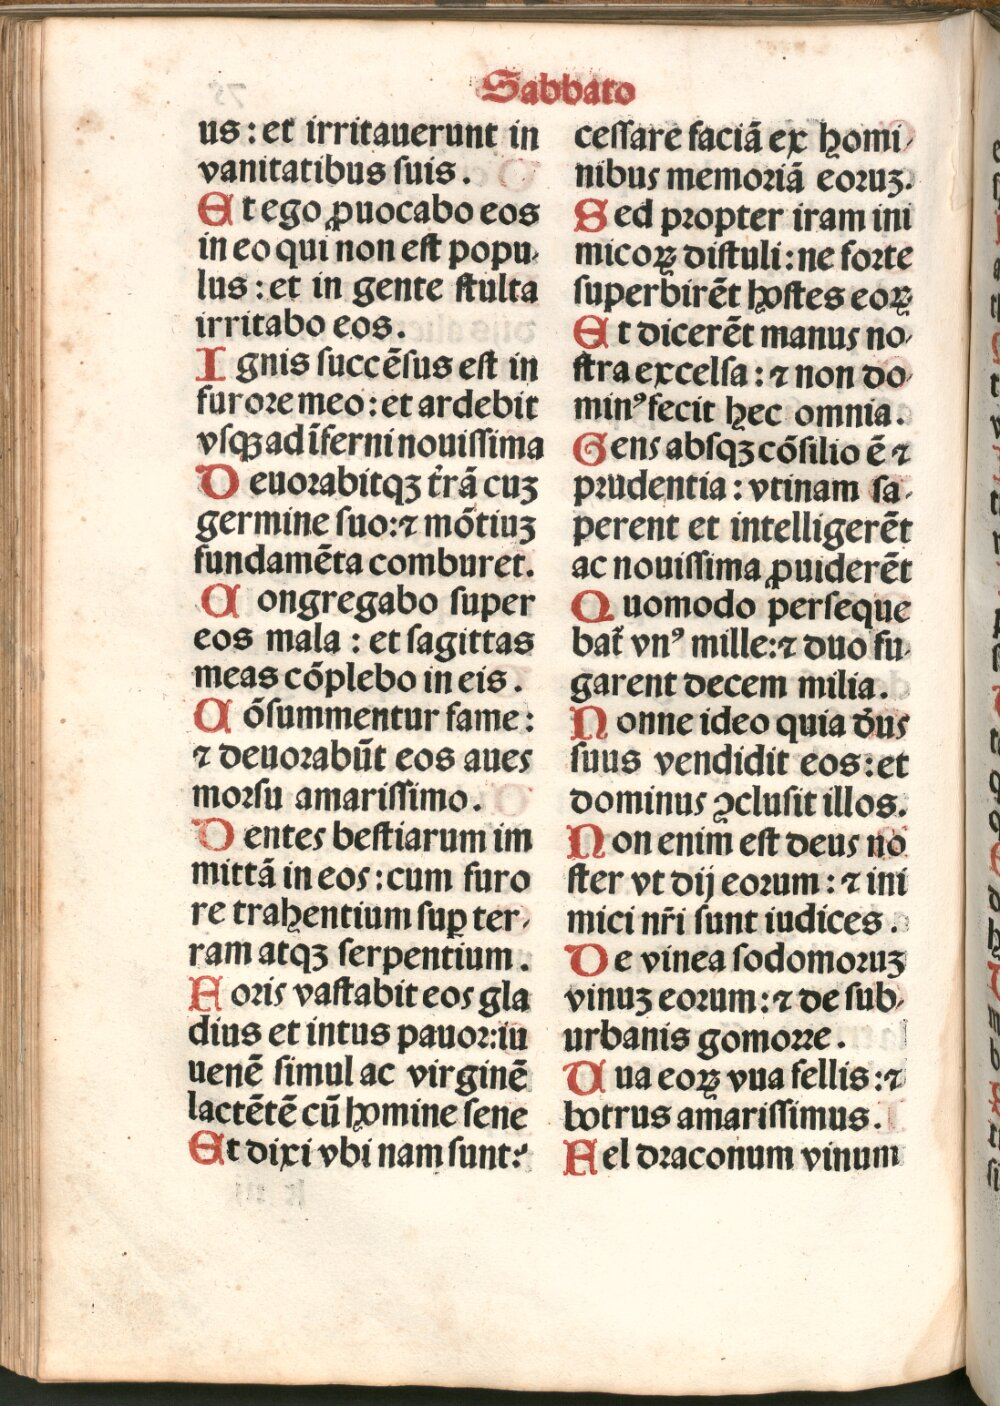 Sabbato
us : et irritauerunt in
vanitatibus suis .
Et ego ꝓuocabo eos
in eo qui non est popu-
lus : et in gente stulta
irritabo eos .
Ignis succēsus est in
furore meo : et ardebit
vsqꝫ ad īferni nouissima
Deuorabitqꝫ t̄rā cuꝫ
germine suo : ⁊ mōtiuꝫ
fundamēta comburet .
Congregabo super
eos mala : et sagittas
meas cōplebo in eis .
Cōsummentur fame :
⁊ deuorabūt eos aues
morsu amarissimo .
Dentes bestiarum im
mittā in eos : cum furo
re trahentium suꝑ ter-
ram atqꝫ serpentium .
Foris vastabit eos gla
dius et intus pauor : iu
uenē simul ac virginē
lactētē cū homine sene
Et dixi vbi nam sunt :
cessare faciā ex homi-
nibus memoriā eoruꝫ .
Sed propter iram ini
micoꝝ distuli : ne forte
superbirēt hostes eoꝝ
Et dicerēt manus no-
stra excelsa : ⁊ non do-
minꝰ fecit hec omnia .
Gens absqꝫ cōsilio ē ⁊
prudentia : vtinam sa-
perent et intelligerēt
ac nouissima ꝓuiderēt
Quomodo perseque
bat̄ vnꝰ mille : ⁊ duo fu-
garent decem milia .
Nonne ideo quia d̄us
suus vendidit eos : et
dominus ꝯclusit illos .
Non enim est deus no
ster vt dij eorum : ⁊ ini
mici nr̄i sunt iudices .
De vinea sodomoruꝫ
vinuꝫ eorum : ⁊ de sub-
urbanis gomorre .
Uua eoꝝ vua fellis : ⁊
botrus amarissimus .
Fel draconum vinum